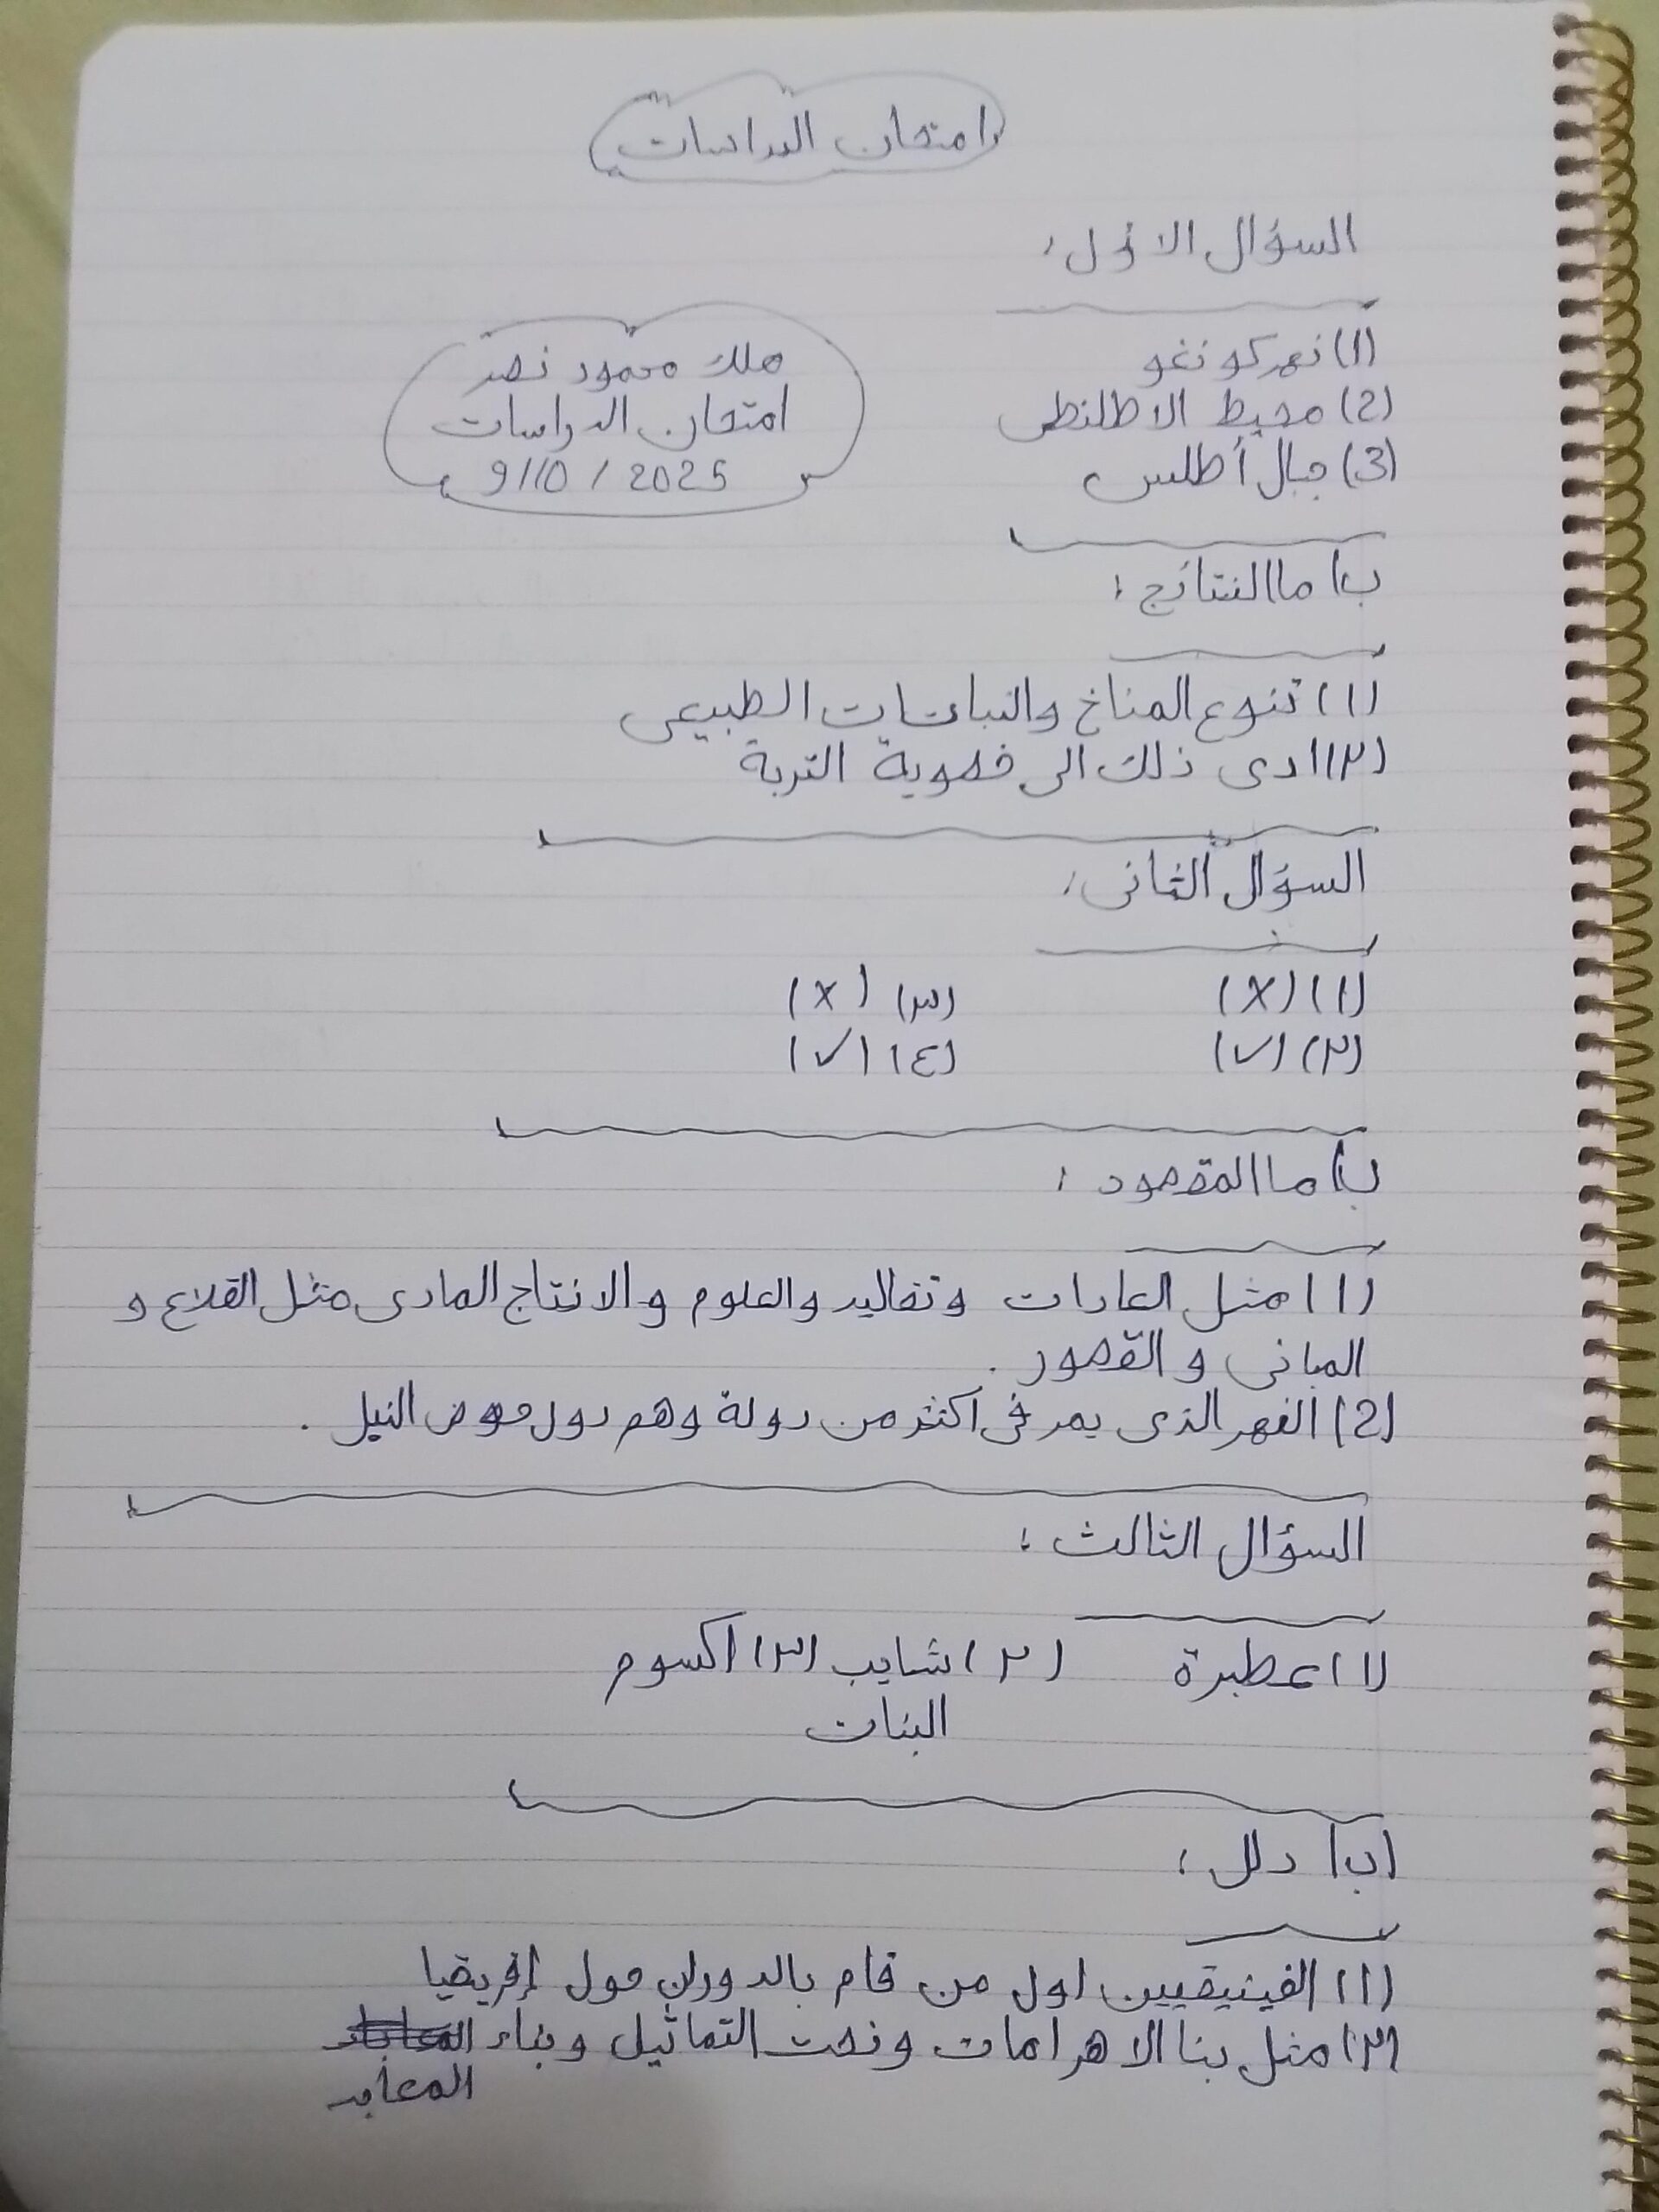 امتحان الدراسات
السؤال الاول:
(1) نهر كونغو
(2) محيط الاطلنطى
(3) جبال أطلس
ملك محمود نصر
امتحان الدراسات
9/10/2025
ب) ما النتائج:
(1) تنوع المناخ والنباتات الطبيعى
(٢) ادى ذلك الى خصوبة التربة
السؤال الثانى:
(1) (X) (٣) (X)
(٢) (✓) (٤) (✓)
ب) ما المقصود:
(1) مثل العادات وتقاليد والعلوم والانتاج المادى مثل القلاع و
المبانى والقصور.
(2) النهر الذى يمر فى اكثر من دولة وهم دول حوض النيل.
السؤال الثالث:
(1) عطبرة (٢) شايب (٣) اكسوم
البنات
(ب) دلل:
(1) الفينيقيين اول من قام بالدوران حول إفريقيا
(٢) مثل بنا الاهرامات ونحت التماثيل وبناء
المعابد